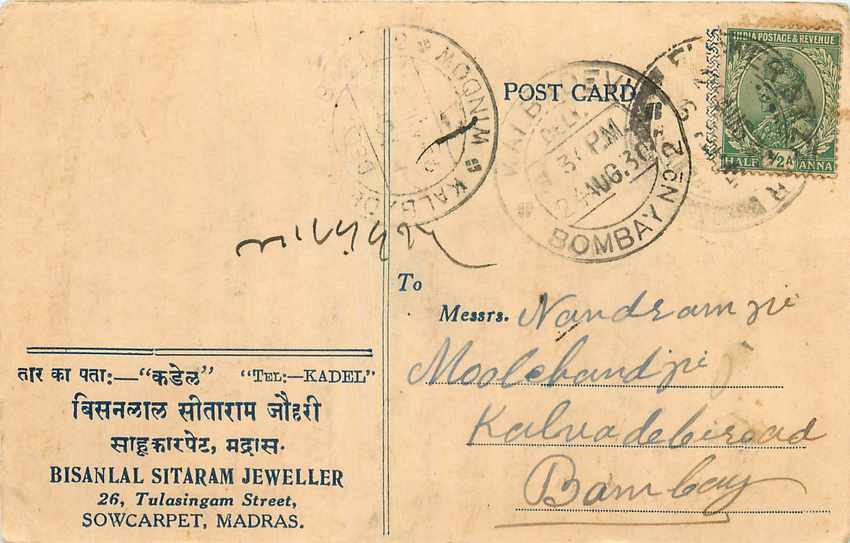 POST CARD
INDIA POSTAGE & REVENUE
HALF ANNA
KALBADEVI
DELY.
3 P.M.
24 AUG. 30
BOMBAY
WINDOW
KALBADE
To
Messrs. Nandramji
Moolchandji
Kalvadebiroad
Bambay
तार का पता:—"कडेल" "TEL:—KADEL"
बिसनलाल सीताराम जौहरी
साहूकारपेट, मद्रास.
BISANLAL SITARAM JEWELLER
26, Tulasingam Street,
SOWCARPET, MADRAS.